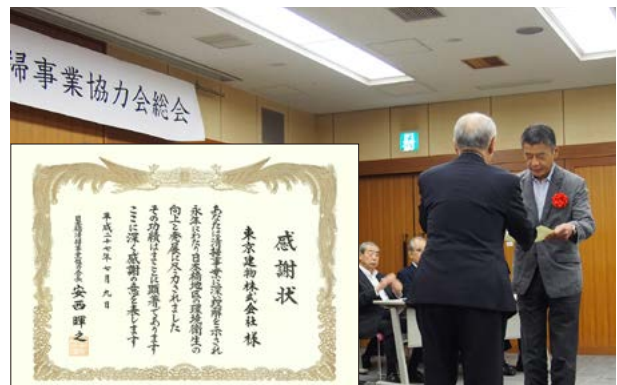 帚事業協力会総会
感謝状
東京建物株式会社 様
あなたは清掃事業に深い理解を示され
永年にわたり日本橋地区の環境衛生の
向上と発展に尽力されました
その功績はまことに顕著であります
ここに深く感謝の意を表します
平成二十七年七月九日
日本橋清掃事業協力会会長 安西暉之